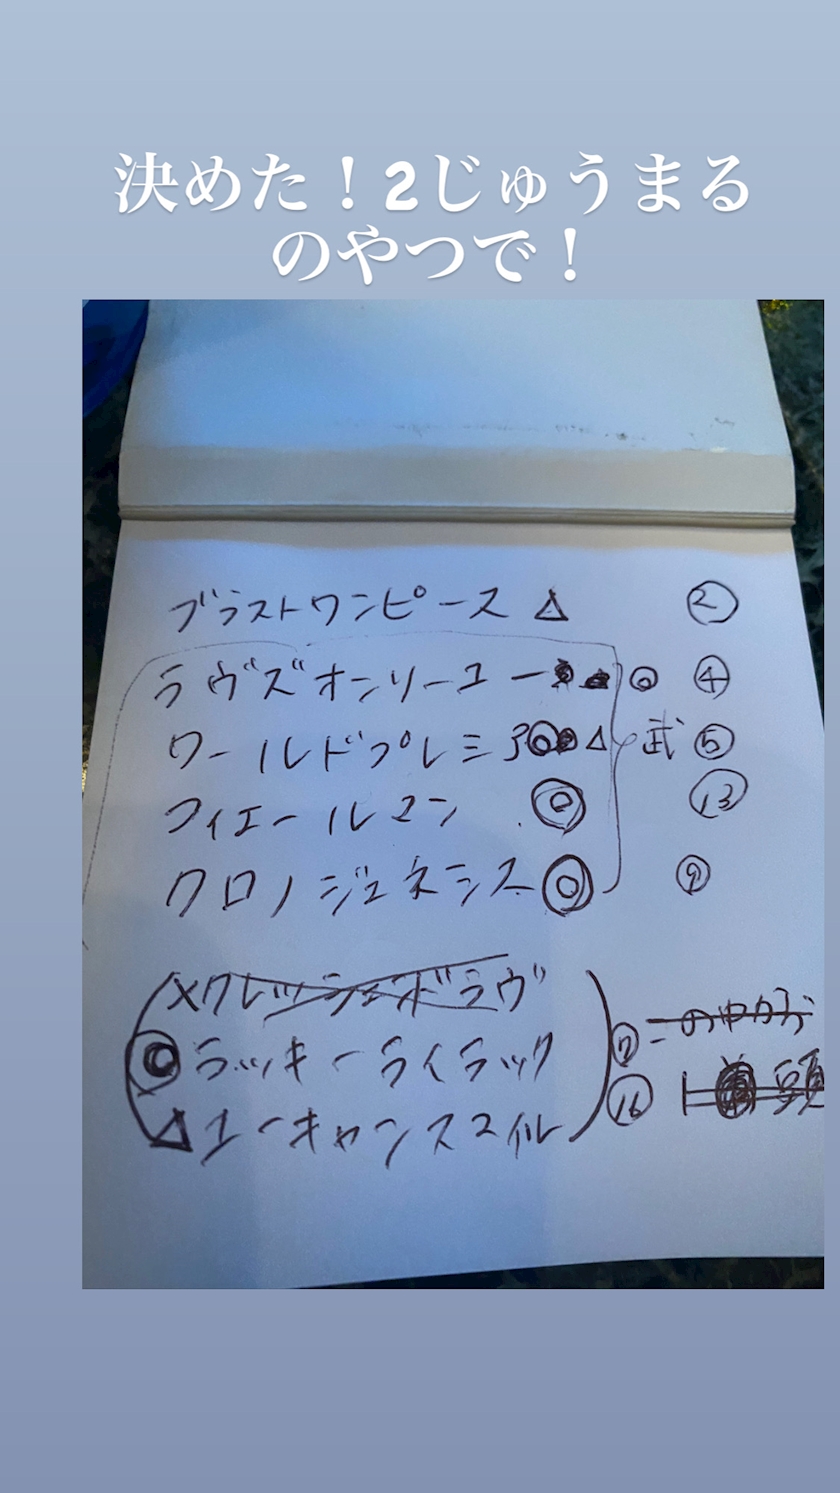 決めた！2じゅうまる
のやつで！
ブラストワンピース △ ②
ラヴズオンリーユー ○ ④
ワールドプレミア △ 武 ⑤
フィエールマン ◎ ⑬
クロノジェネシス ◎ ⑨
×クレッシェンドラヴ
◎ラッキーライラック ⑦
△ユーキャンスマイル ⑯ 頭